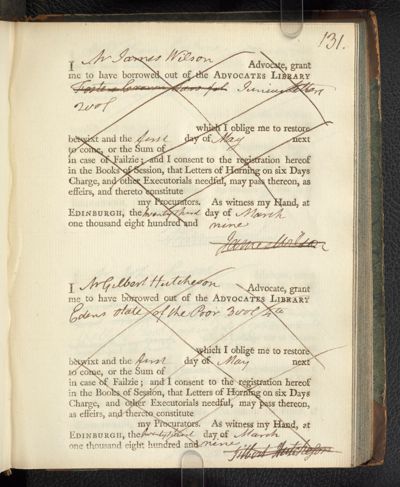 131.
I Mr James Wilson Advocate, grant
me to have borrowed out of the ADVOCATES LIBRARY
Fosters Crown Law fol Junius Letters
2 vol
which I oblige me to restore
betwixt and the first day of May next
to come, or the Sum of
in case of Failzie; and I consent to the registration hereof
in the Books of Session, that Letters of Horning on six Days
Charge, and other Executorials needful, may pass thereon, as
effeirs, and thereto constitute
my Procurators. As witness my Hand, at
EDINBURGH, the twenty third day of March
one thousand eight hundred and nine
James Wilson
I Mr Gilbert Hutcheson Advocate, grant
me to have borrowed out of the ADVOCATES LIBRARY
Edens state of the Poor 3 vol 4to
which I oblige me to restore
betwixt and the first day of May next
to come, or the Sum of
in case of Failzie; and I consent to the registration hereof
in the Books of Session, that Letters of Horning on six Days
Charge, and other Executorials needful, may pass thereon,
as effeirs, and thereto constitute
my Procurators. As witness my Hand, at
EDINBURGH, the twenty third day of March
one thousand eight hundred and nine
Gilbert Hutcheson